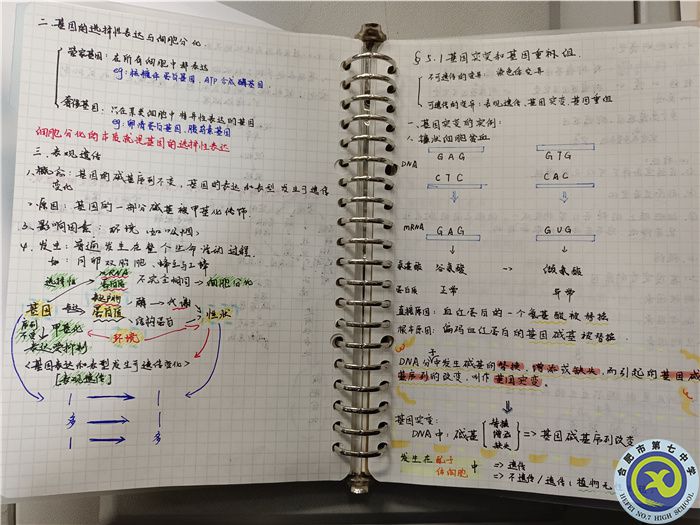 二. 基因的选择性表达与细胞分化.
管家基因: 在所有细胞中都表达
eg: 核糖体蛋白基因、ATP合成酶基因.
奢侈基因: 只在某类细胞中特异性表达的基因
eg: 卵清蛋白基因、胰岛素基因
细胞分化的本质就是基因的选择性表达
三. 表观遗传
1. 概念: 基因的碱基序列不变, 基因的表达和表型发生可遗传
变化
2. 原因: 基因的一部分碱基被甲基化修饰.
3. 影响因素: 环境 (如吸烟)
4. 发生: 普遍发生在整个生命活动过程.
如: 同卵双胞胎 蜂王与工蜂
选择性
mRNA
蛋白质
不完全相同 → 细胞分化
基因
表达
表达产物
蛋白质
酶 → 代谢
结构蛋白
性状
序列
不变
甲基化
环境
表达受抑制
<基因表达和表型发生可遗传变化>
[表观遗传]
1 → 1
多 → 1
1 → 多
§5.1 基因突变和基因重组.
不可遗传的变异:
可遗传的变异: 表观遗传、基因突变、基因重组
一. 基因突变的实例:
1. 镰状细胞贫血
DNA
GAG GTG
CTC CAC
mRNA GAG GUG
氨基酸 谷氨酸 → 缬氨酸
蛋白质 正常 异常
直接原因: 血红蛋白的一个氨基酸被替换
根本原因: 编码血红蛋白的基因碱基被替换.
DNA分子中发生碱基的替换、增添或缺失, 而引起的基因碱
基序列的改变, 叫作基因突变.
基因突变:
DNA中: 碱基
替换
增添
缺失
=> 基因碱基序列改变
发生在
配子
体细胞
中 => 遗传
=> 不遗传/遗传: 植物
合肥市第七中学
HEFEI NO.7 HIGH SCHOOL